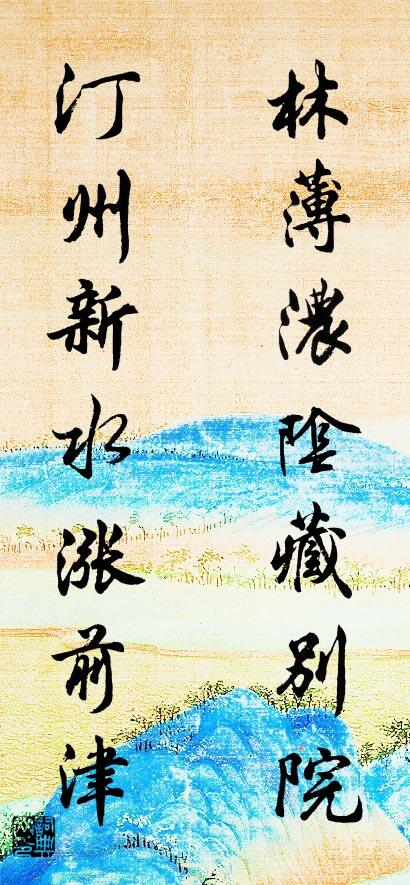 林薄濃陰藏別院
汀州新水漲前津